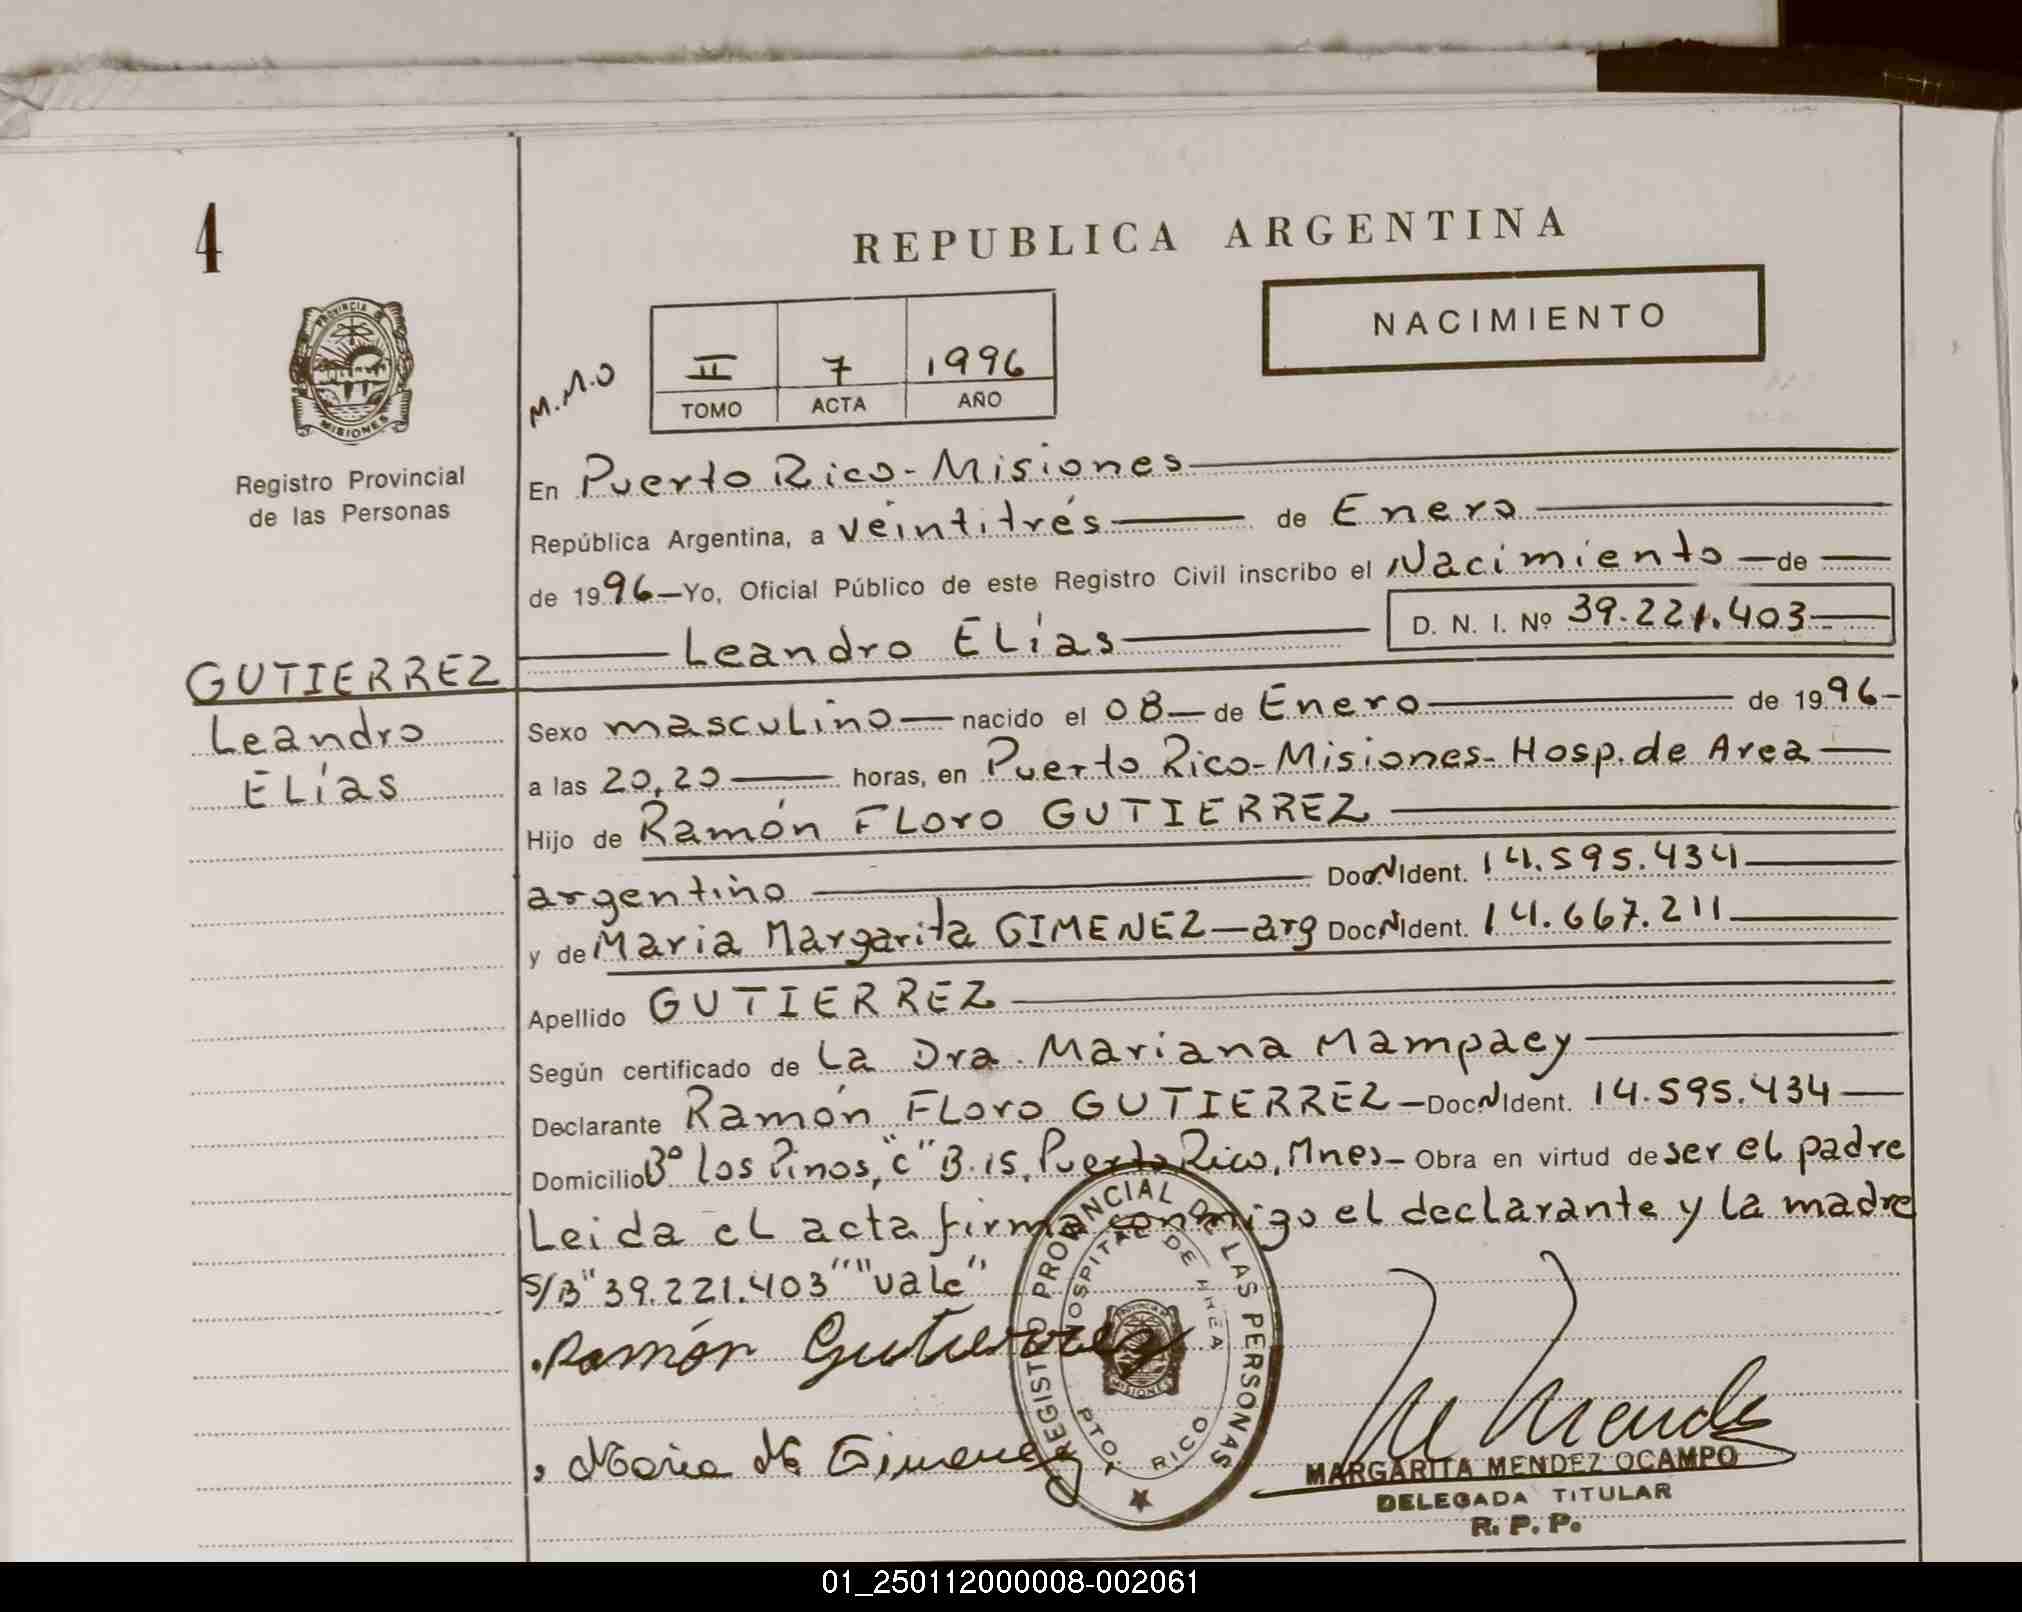 4
REPUBLICA ARGENTINA
NACIMIENTO
PROVINCIA DE
MISIONES
Registro Provincial
de las Personas
M.M.O
II 7 1996
TOMO ACTA AÑO
En Puerto Rico - Misiones
República Argentina, a veintitrés de Enero
de 1996 - Yo, Oficial Público de este Registro Civil inscribo el Nacimiento - de
Leandro Elías D. N. I. Nº 39.221.403
GUTIERREZ
Leandro
Elías
Sexo masculino - nacido el 08 - de Enero de 1996 -
a las 20,20 horas, en Puerto Rico - Misiones - Hosp. de Area
Hijo de Ramón Floro GUTIERREZ
argentino Doc. N Ident. 14.595.434
y de Maria Margarita GIMENEZ - arg Doc N Ident. 14.667.211
Apellido GUTIERREZ
Según certificado de La Dra. Mariana Mampaey
Declarante Ramón Floro GUTIERREZ - Doc. N Ident. 14.595.434
Domicilio Bº los Pinos, "c" B. 15, Puerto Rico, Mnes - Obra en virtud de ser el padre
Leida el acta firma conmigo el declarante y la madre
s/B "39.221.403" "vale"
Ramón Gutierrez
Maria M. Gimenez
REGISTRO PROVINCIAL DE LAS PERSONAS
HOSPITAL DE AREA
PTO. RICO
MISIONES
M Mendez
MARGARITA MENDEZ OCAMPO
DELEGADA TITULAR
R. P. P.
01_250112000008-002061